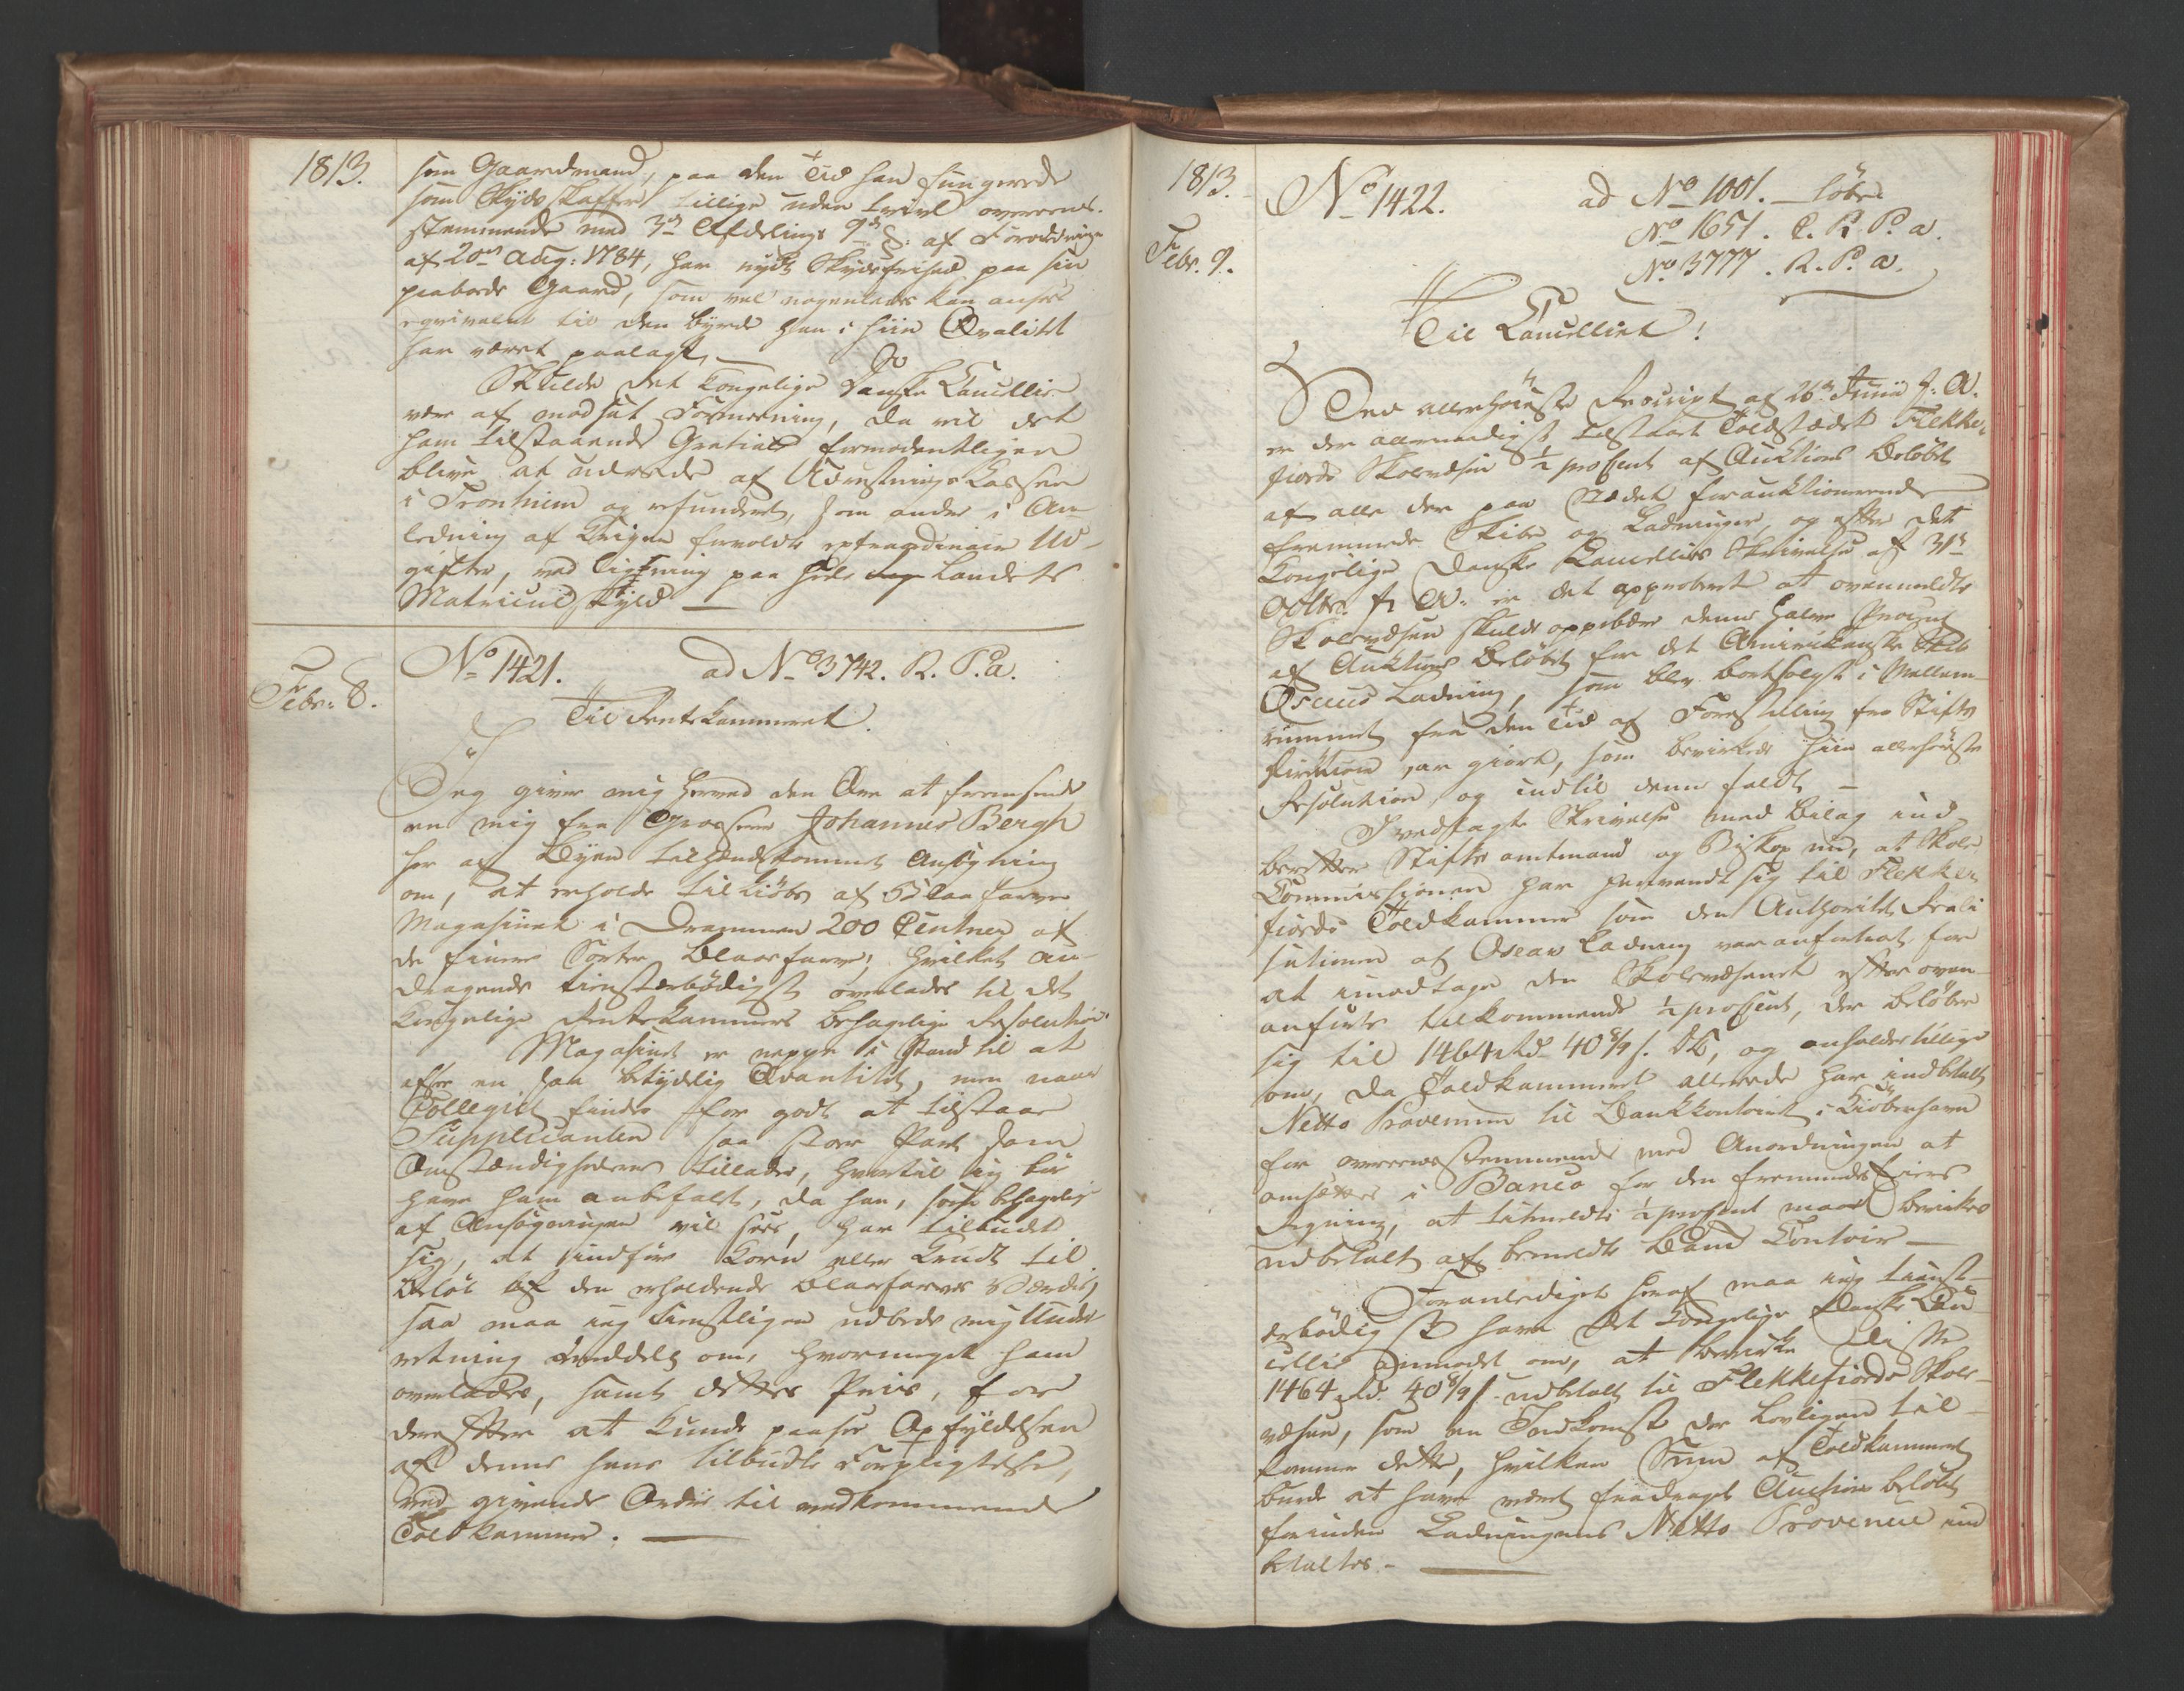 1813.
som Gaardmand, paa den Tid han fungerede
som Skydsskaffer tillige uden tvivl overeens-
stemmende med 3die Afdelings 9de §. af Forordningen
af 20de Aug: 1784, har nydt Skydsfrihed paa sin
paaboede Gaard, som vel nogenledes kan ansees
eqvivalent til den byrde han i hiin Qvalitet
har været paalagt, —
Skulde det Kongelige Danske Cancellie
være af modsat Formeening, da vil det
ham tilstaaende Gratiale formodentligen
blive at udrede af Udrustnings Cassen
i Tronhiem og refunderet, som andre i An-
ledning af Krigen forvoldte extraordinaire Ud-
gifter, ved Ligning paa hele Landets
Matricul Skyld —
Febr: 8.
No 1421. ad No 3742. R. P. a.
Til Rentekammeret.
Jeg giver mig herved den Ære at fremsende
en mig fra Grosserer Johannes Bergh
her af Byen tilhændekommet Ansøgning
om, at erholde tilkiøbs af Blaafarve
Magasinet i Drammen 200 Centner af
de finere Sorter Blaafarve; hvilket an-
dragende tienstærbødigst overlades til det
Kongelige Rentekammers behagelige Resolution.
Magasinet er neppe i Stand til at
afsee en saa betydelig Qvantitet, men naar
Collegiet finder for godt at tilstaae
Supplicanten saa stor Part som
Omstændighederne tillader, hvortil jeg bør
have ham anbefalt, da han, som behagelig
af Ansøgningen vil sees, har tilbudet
sig, at indføre Korn eller Krudt til
Beløb af den erholdende Blaafarves Værdie,
saa maa jeg tienstligen udbede mig Under-
retning meddelt om, hvormeget ham
overlades, samt dettes Priis, for
derefter at kunde paasee Opfyldelsen
af denne hans tilbudte Forpligtelse,
ved givende Ordre til vedkommende
Toldkammer. —
1813.
Febr. 9.
No 1422. ad No 1001. — løbe
No 1651. C. R. P. a.
No 3777. R. P. a.
Til Cancelliet!
Ved allerhøieste Rescript af 26de Junii f: A.
er der allernaadigst tilstaaet Toldstædet Flekke-
fiords Skolevæsen ½ procent af Auktions Beløbet
af alle der paa Stædet forauktioneerende
fremmede Skibe og Ladninger, og efter det
Kongelige Danske Cancellies Skrivelse af 31te
Octbr. f: A: er det approberet at ovenmeldte
Skolevæsen skulde oppebære denne halve Procent
af Auktions Beløbet for det Amerikanske Skib
Oscars Ladning, som blev bortsolgt i Mellem-
rummet fra den Tid af Forestilling fra Stifts
Direktionen var giort, som bevirkede hiin allerhøieste
Resolution, og indtil denne faldt —
I vedlagte Skrivelse med Bilag ind-
beretter Stiftsamtmand og Biskop nu, at Skole
Commissionen har henvendt sig til Flekke-
fiords Toldkammer som den Authoritet Reali-
sationen af Oscars Ladning var anfortroet for
at imodtage den Skolevæsenet efter oven-
anførte tilkommende ½ procent, der beløber
sig til 1464 Rd. 40 8/9 s. DC, og anholder tillige
om, da Toldkammeret allerede har indbetalt
Netto Provenuen til Bankkontoiret i Kiöbenhavn
for overeensstemmende med Anordningen at
omsættes i Banco for den fremmede Eiers
Regning, at bemeldte ½ procent maae bevirkes
udbetalt af bemeldte Banco Contoir —
Foranlediget heraf maa jeg tienst-
ærbødigst have det Kongelige Danske Can-
cellie anmodet om, at bevirke disse
1464 Rd. 40 8/9 s. udbetalt til Flekkefiords Skole-
væsen, som en Indkomst der lovligen til-
kommer dette, hvilken Sum af Toldkammeret
burde at have været fradraget Auctions beløbet
forinden Ladningens Netto Provenue ind
betaltes. —